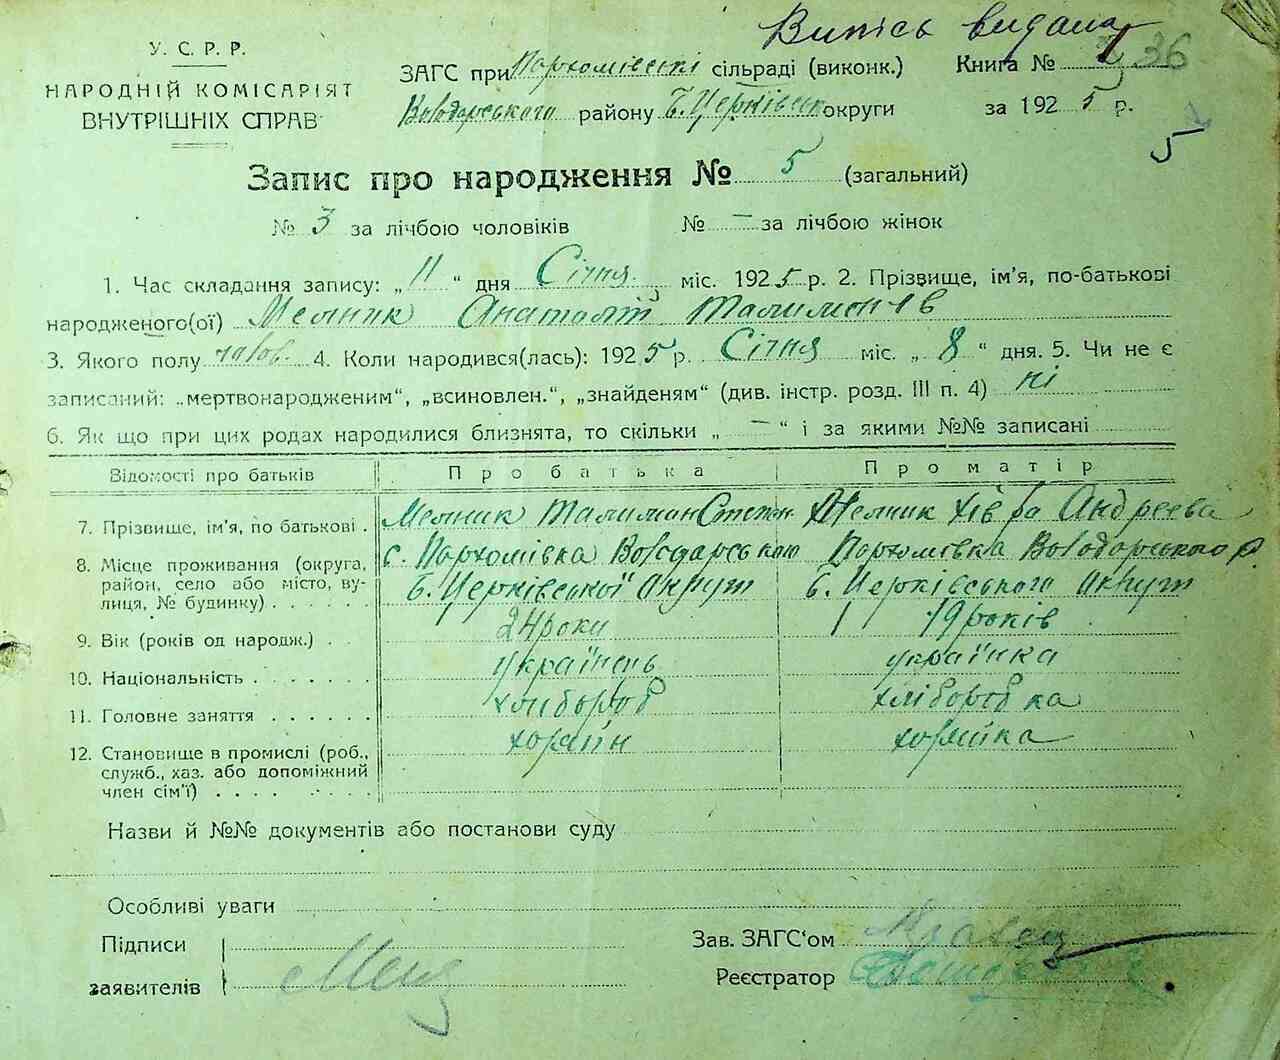 Випісь видана
36
У. С. Р. Р.
НАРОДНІЙ КОМІСАРІЯТ
ВНУТРІШНІХ СПРАВ
ЗАГС при Пархомівській сільраді (виконк.) Книга №
Володарського району Б. Церківськ округи за 1925 р.
5
Запис про народження № 5 (загальний)
№ 3 за лічбою чоловіків № — за лічбою жінок
1. Час складання запису: „11“ дня Січня міс. 1925 р. 2. Прізвище, ім'я, по-батькові
народженого(ої) Мельник Анатолій Талимонів
3. Якого полу чолов. 4. Коли народився(лась): 1925 р. Січня міс. „8“ дня. 5. Чи не є
записаний: „мертвонародженим“, „всиновлен.“, „знайденям“ (див. інстр. розд. III п. 4) ні
6. Як що при цих родах народилися близнята, то скільки „—“ і за якими №№ записані
Відомості про батьків Про батька Про матір
7. Прізвище, ім'я, по батькові . Мельник Талимон Степан Мельник Хівря Андреєва
8. Місце проживання (округа, район, село або місто, вулиця, № будинку) . . . . . . с. Пархомівка Володарською Пархомівка Володарського р.
Б. Церківської Округи Б. Церківського Округи
9. Вік (років од народж.) . 24 роки 19 років
10. Національність . . . . . . . українець українка
11. Головне заняття . . . . . . хлібороб хліборобка
12. Становище в промислі (роб., служб., хаз. або допоміжний член сім'ї) . . . . . . . . хозяїн хозяйка
Назви й №№ документів або постанови суду
Особливі уваги
Підписи
заявителів
Зав. ЗАГС'ом
Реєстратор